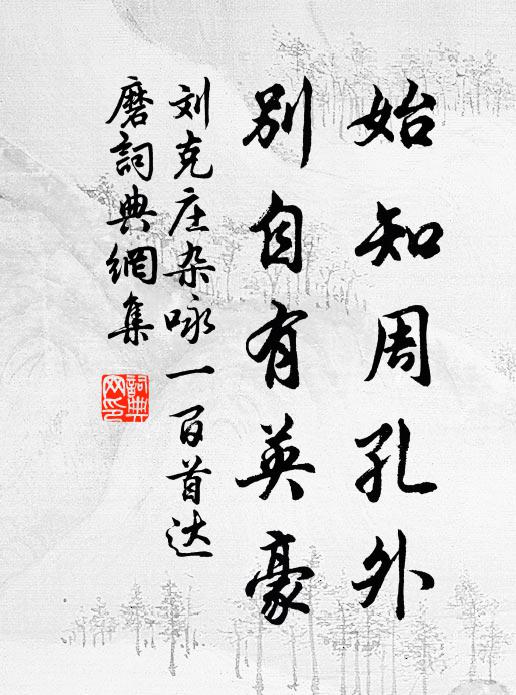 始知周孔外
别自有英豪
刘克庄杂咏一百首达
磨詞典網集
詞典
网印